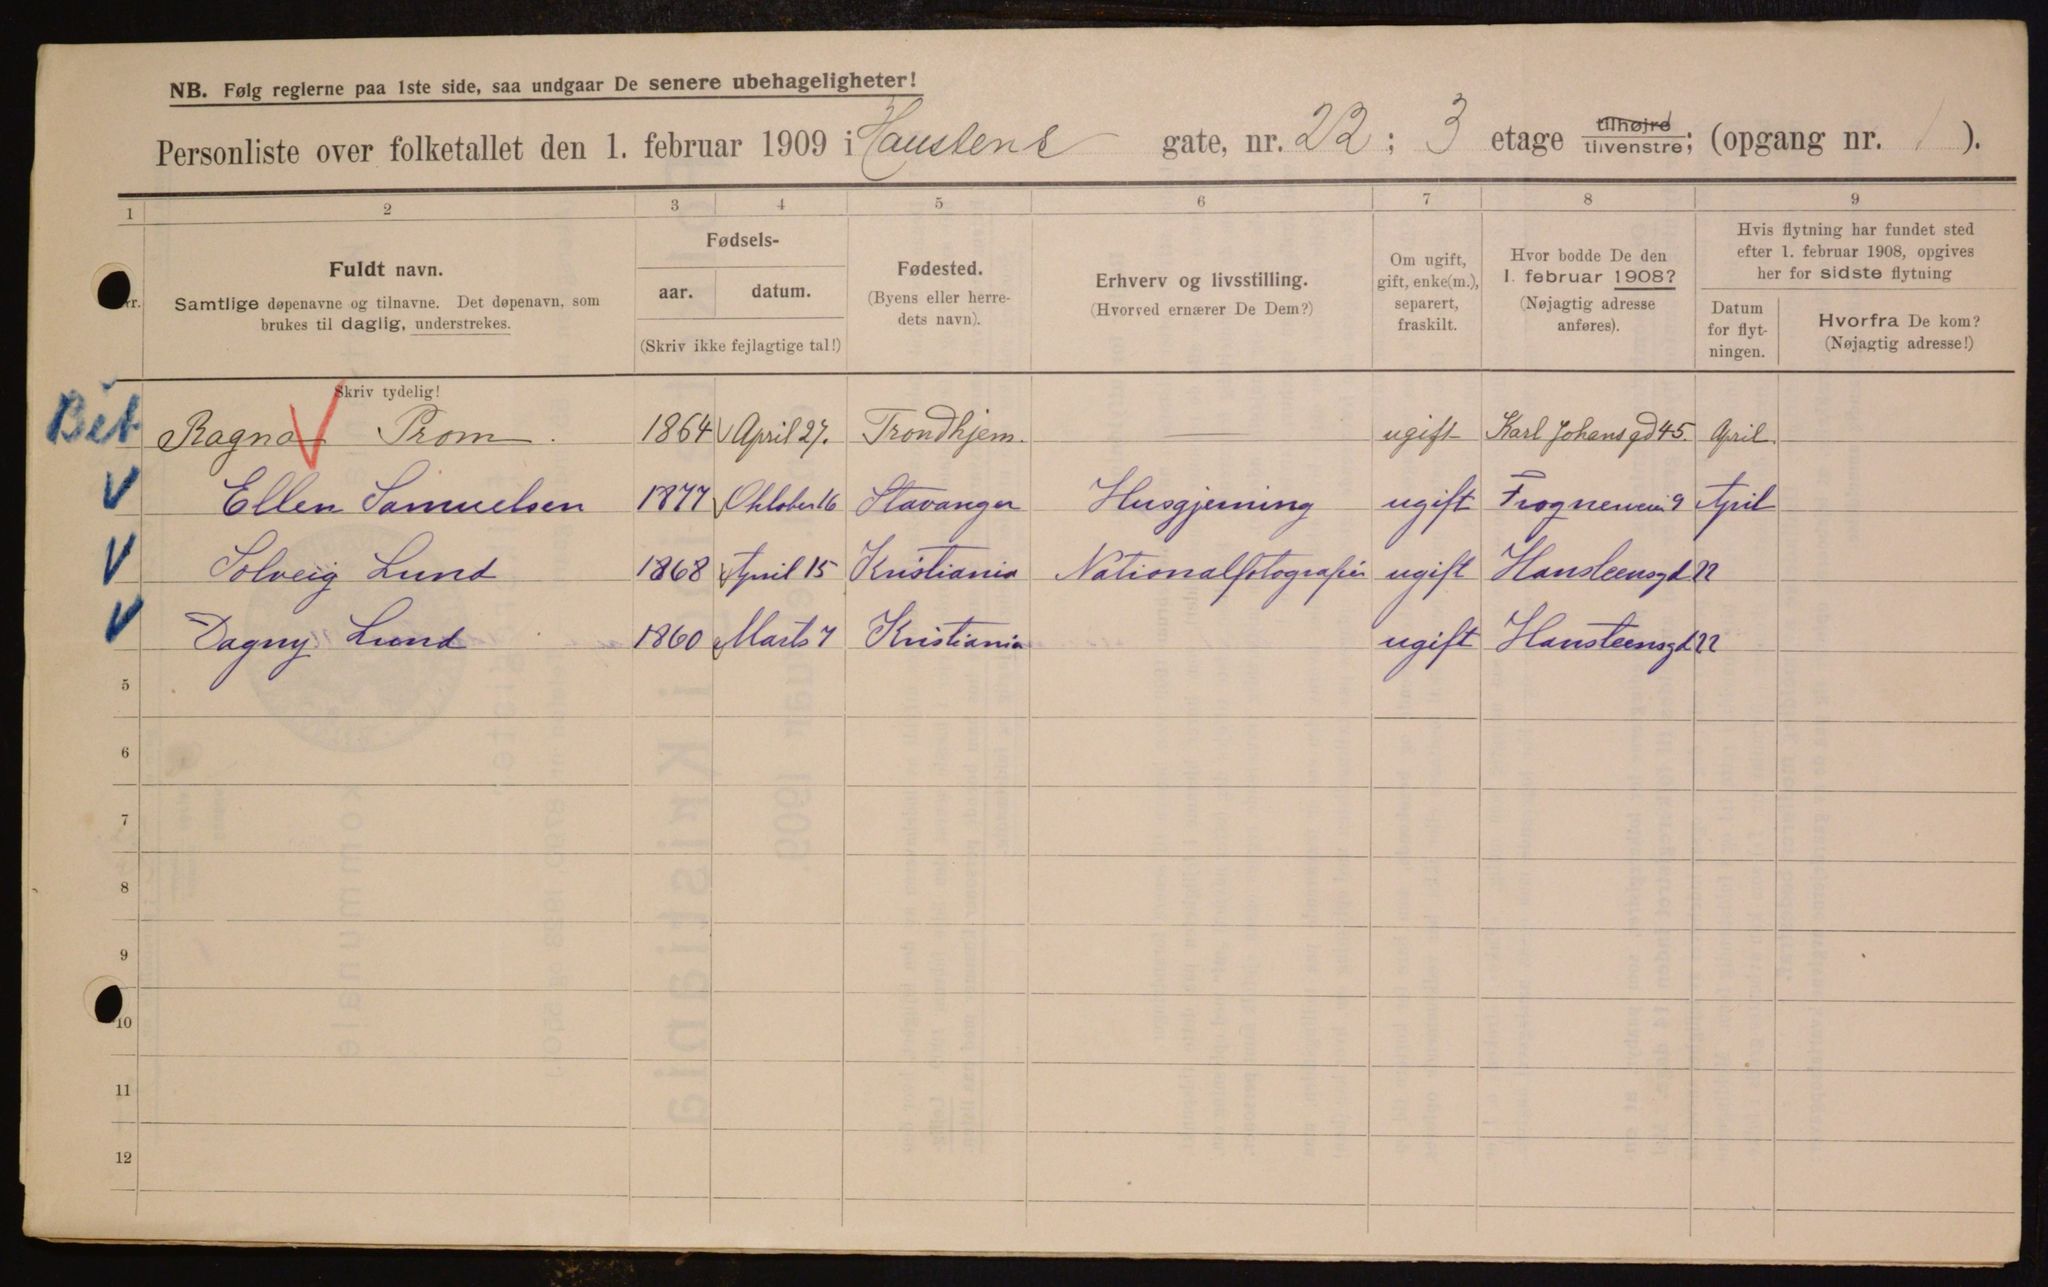 NB. Følg reglerne paa 1ste side, saa undgaar De senere ubehageligheter!
Personliste over folketallet den 1. februar 1909 i Haustens gate, nr. 22; 3 etage tilhøjre tilvenstre; (opgang nr. 1).
1 2 3 4 5 6 7 8 9
Fuldt navn.
Samtlige døpenavne og tilnavne. Det døpenavn, som
brukes til daglig, understrekes.
Fødsels-
aar. datum.
(Skriv ikke fejlagtige tal!)
Fødested.
(Byens eller herre-
dets navn).
Erhverv og livsstilling.
(Hvorved ernærer De Dem?)
Om ugift,
gift, enke(m.),
separert,
fraskilt.
Hvor bodde De den
1. februar 1908?
(Nøjagtig adresse
anføres).
Hvis flytning har fundet sted
efter 1. februar 1908, opgives
her for sidste flytning
Datum
for flyt-
ningen.
Hvorfra De kom?
(Nøjagtig adresse!)
Skriv tydelig!
Bet Ragna Prom. 1864 April 27. Trondhjem. ugift Karl Johansgd 45. April.
Ellen Samuelsen 1877 Oktober 16 Stavanger Husgjerning ugift Frognervein 9 April
Solveig Lund 1868 April 15 Kristiania Nationalfotografin ugift Hansteensgd 22
Dagny Lund 1860 Marts 7 Kristiania ugift Hansteensgd 22
5
6
7
8
9
10
11
12